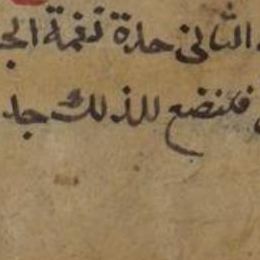 الثانى حدة نغمة الج
فلنضع للذلك جد